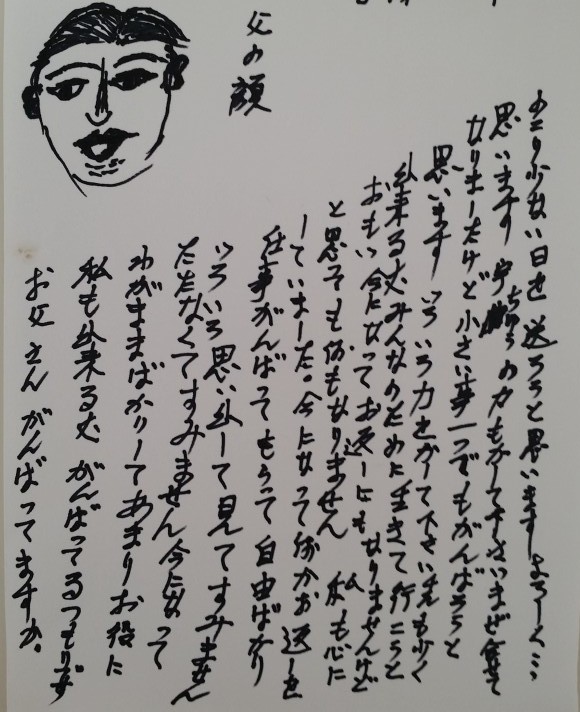 父の顔
お父さん がんばってますか。
私も出来る丈 がんばってるつもりです
わがままばかりしてあまりお役に
たたなくてすみません 今になって
いろいろ思い出して見てすみません
仕事がんばってもらって自由ばかり
していました。今になって何かお返しを
と思っても何もなりません 私も心に
おもい今になってお返しにもなりませんけど
出来る丈みんなのために生きて行こうと
思います いろいろ力をかして下さい私も少く
なりましたけど小さい事一つでもがんばろうと
思います 宇ちゅうの力もかして下さいまぜ合せて
のこり少ない日を送ろうと思います よろしく…